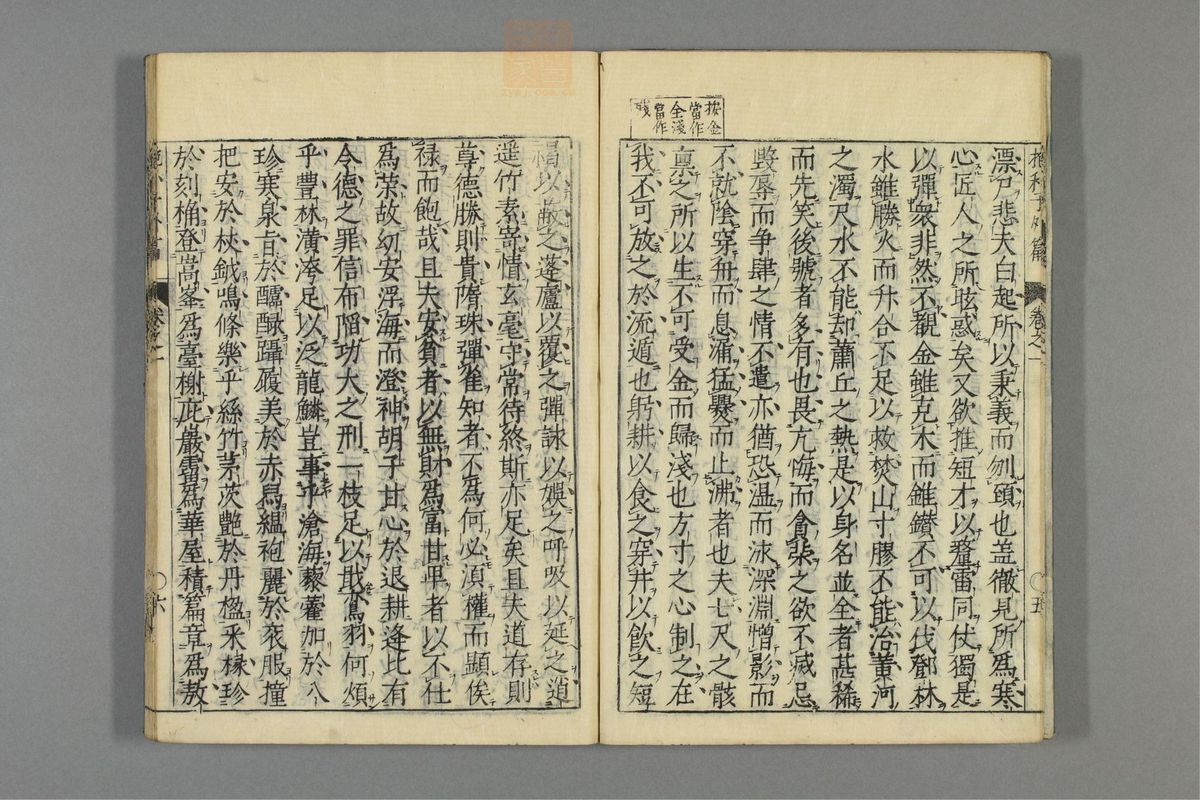 抱朴子外篇　卷之一　〇五
按金
當作
全淺
當作
殘
漂尸悲夫白起所以秉義而刎頸也盖徹見所爲寒
心匠人之所眩惑矣又欲推短才以釐雷同仗獨是
以彈衆非然不覩金雖克木而錐鑽不可以伐鄧林
水雖勝火而升合不足以救焚山寸膠不能治黄河
之濁尺水不能却蕭丘之熱是以身名並全者甚稀
而先笑後號者多有也畏亢悔而貪榮之欲不滅忌
毀辱而争肆之情不遣亦猶恐温而泳深淵憎影而
不就陰穿舟而息漏猛爨而止沸者也夫七尺之骸
稟之所以生不可受金而歸淺也方寸之心制之在
我不可放之於流遁也躬耕以食之穿井以飲之短
褐以蔽之蓬廬以覆之彈詠以娛之呼吸以延之逍
遥竹素寄情玄毫守常待終斯亦足矣且夫道存則
尊德勝則貴隋珠彈雀知者不爲何必須權而顯俟
禄而飽哉且夫安貧者以無財爲富甘卑者以不仕
爲榮故幼安浮海而澄神胡子甘心於退耕逢比有
令德之罪信布陷功大之刑一枝足以戢鸞羽何煩
乎豐林潢洿足以泛龍鱗豈事乎滄海藜藿加於八
珍寒泉旨於醽醁躡履美於赤舄縕袍麗於衮服撞
把安於杖鉞鳴條樂乎絲竹茅茨艶於丹楹采椽珍
於刻桷登嵩峯爲臺榭庇巖霤爲華屋積篇章爲敖
卷之一　〇六